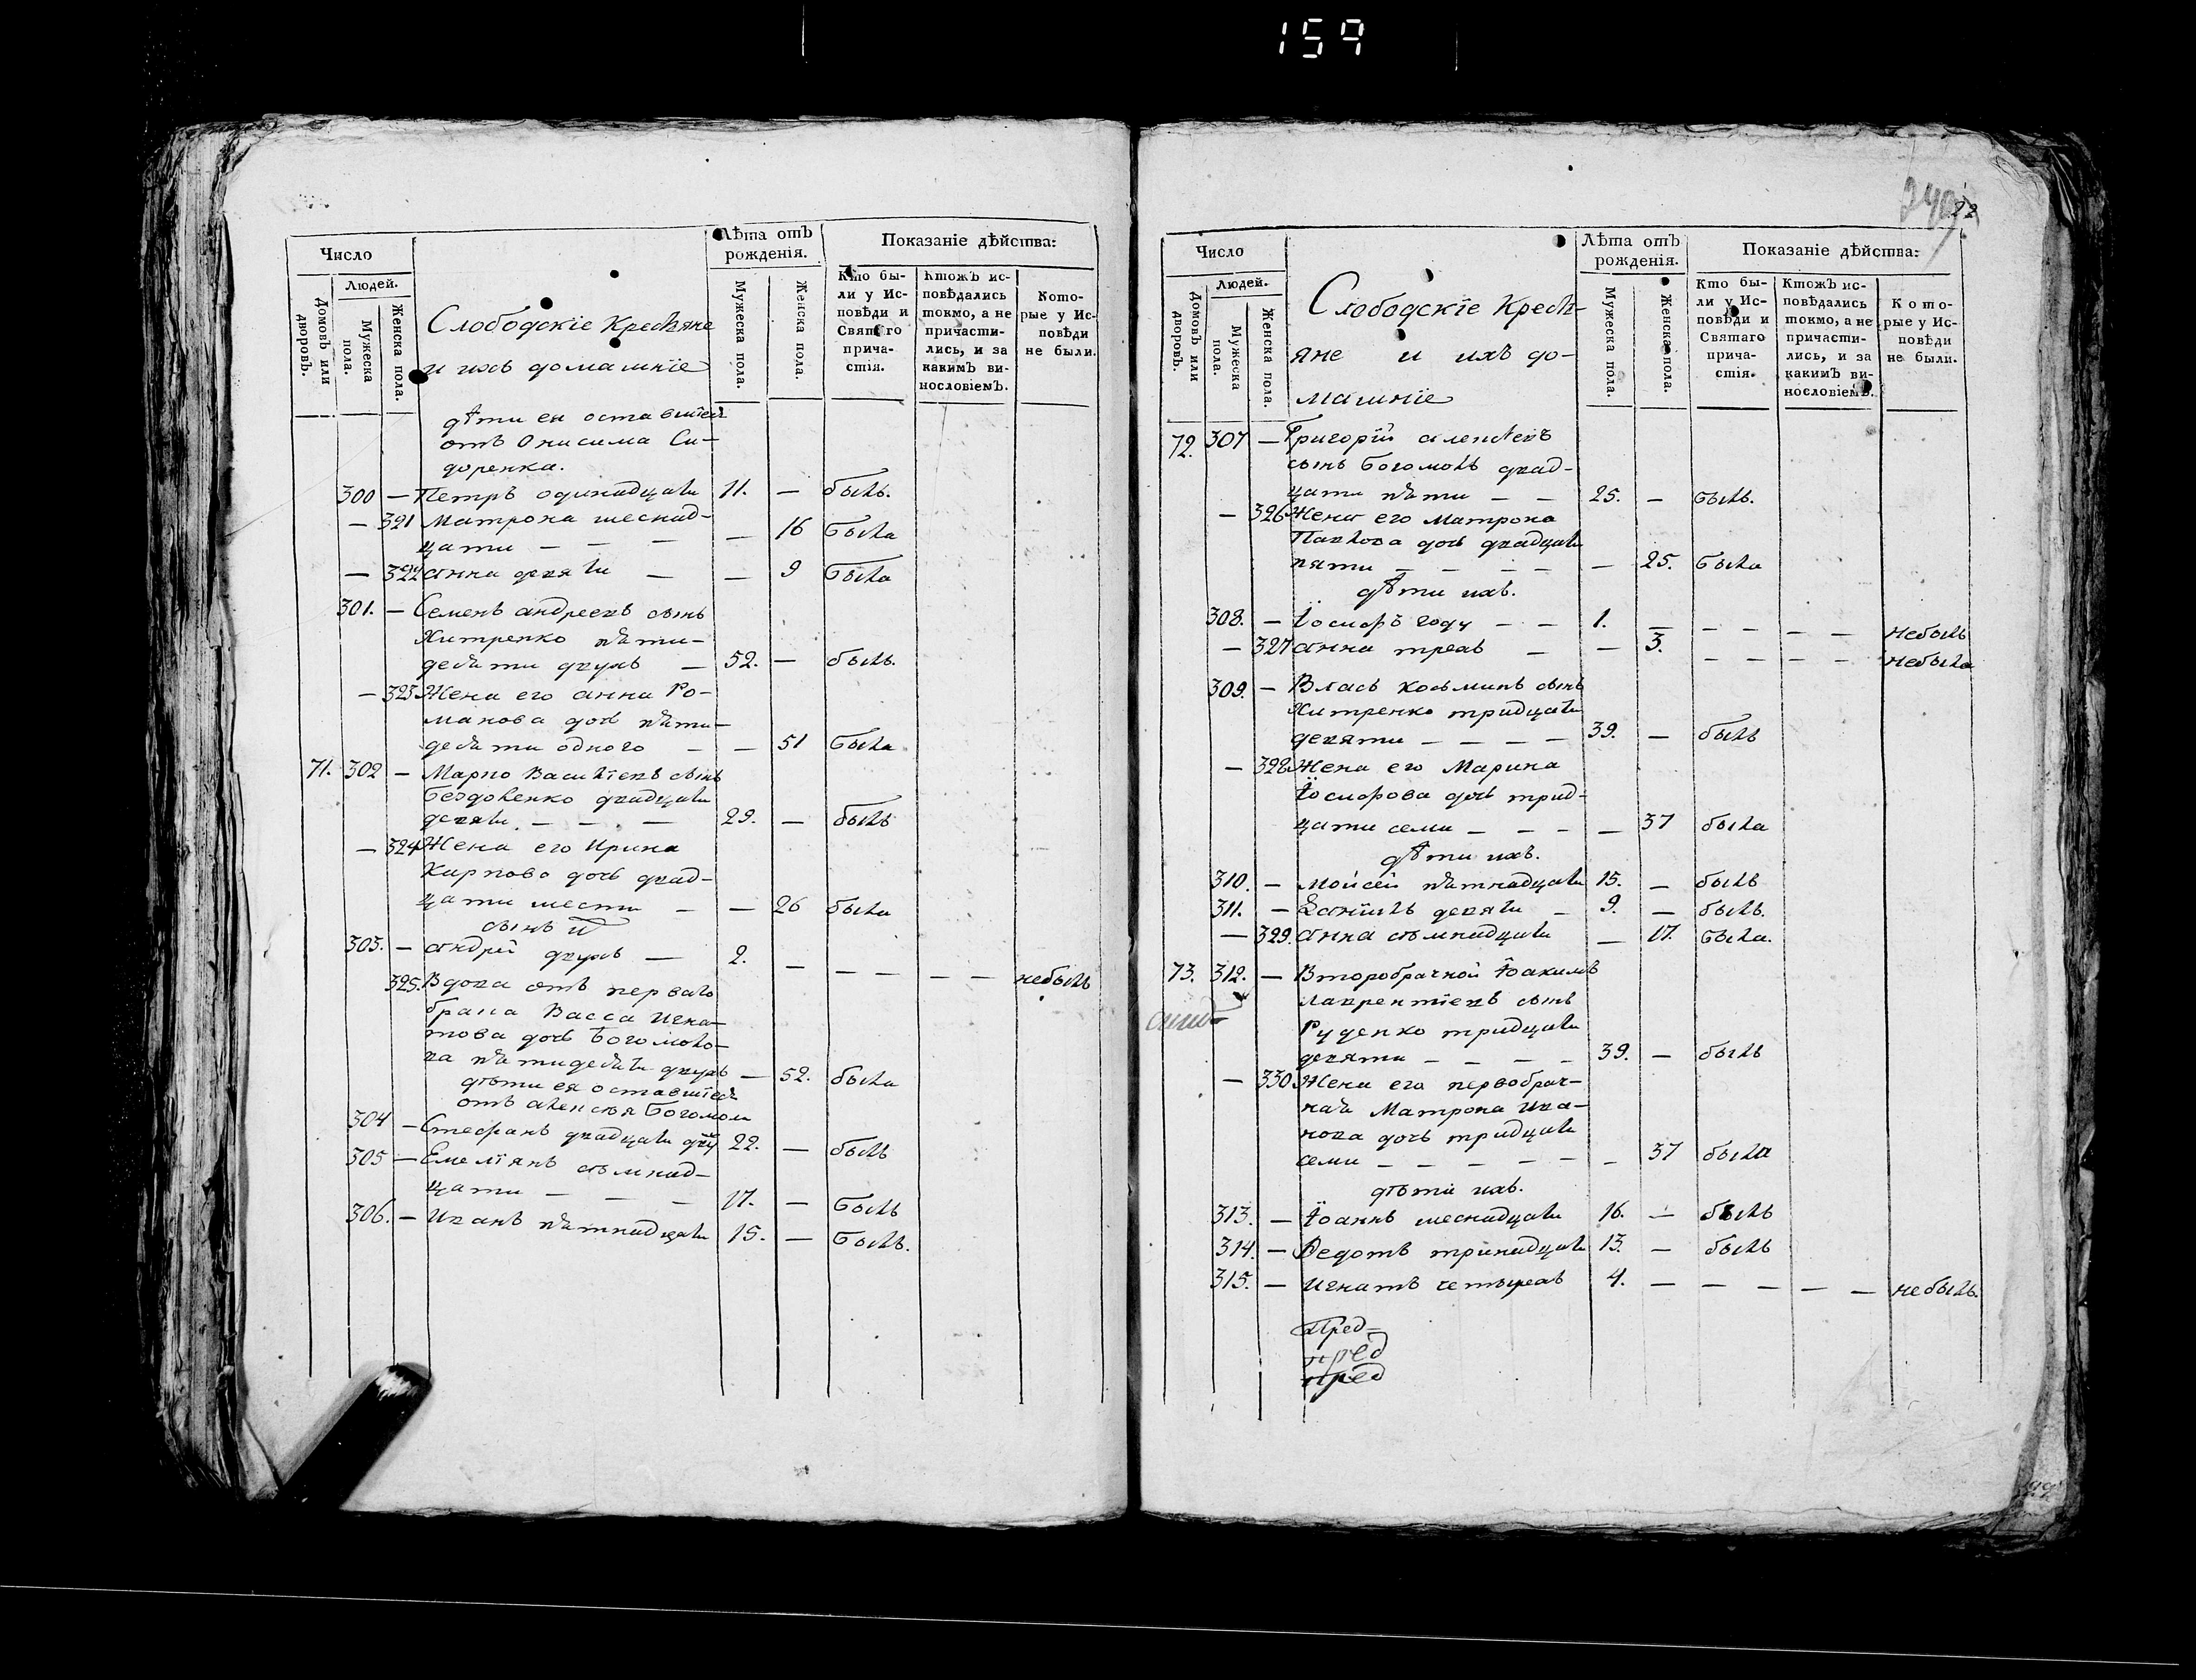 159
Число
Людей.
Домовъ или дворовъ.
Мужеска пола.
Женска пола.
Слободскіе Крестяне
и ихъ домашніе
Лѣта отъ
рожденія.
Мужеска пола.
Женска пола.
Показаніе дѣйства:
Кто бы-
ли у Ис-
повѣди и
Святаго
прича-
стія.
Ктожъ ис-
повѣдались
токмо, а не
причасти-
лись, и за
какимъ ви-
нословіемъ.
Кото-
рые у Ис-
повѣди
не были.
дѣти ея оставшіеся
отъ Онисима Си-
доренка.
300 — Петръ одинадцати 11. — былъ.
— 321 Матрона шеснад-
цати — — — — 16 была
— 322 Анна девяти — — 9 была
301. — Семенъ андреевъ сынъ
Хитренко пяти-
десяти двухъ — 52. — былъ.
— 323 Жена его анна Ро-
манова дочь пяти-
десяти одного — — 51 была
71. 302 — Марко Василіевъ сынъ
двадцати
девяти — — — 29. — былъ
— 324 Жена его Ирина
Карпова дочь двад-
цати шести — — 26 была
сынъ и
303. — андрей двухъ — 2. — — — — — небылъ
325. Вдова отъ перваго
брака Васса Игна-
това дочь Богомоло-
ва пятидесяти двухъ — 52. была
дѣти ея оставшіеся
отъ алексѣя Богомола
304 — Стефанъ двадцати двух 22. — былъ
305 — Емеліянъ семнад-
цати — — — 17. — былъ
306. — Иванъ пятнадцати 15. — былъ.
249
22
Число
Людей.
Домовъ или дворовъ.
Мужеска пола.
Женска пола.
Слободскіе Кресть-
яне и ихъ до-
машніе
Лѣта отъ
рожденія.
Мужеска пола.
Женска пола.
Показаніе дѣйства:
Кто бы-
ли у Ис-
повѣди и
Святаго
прича-
стія.
Ктожъ ис-
повѣдались
токмо, а не
причасти-
лись, и за
какимъ ви-
нословіемъ.
Кото-
рые у Ис-
повѣди
не были.
72. 307 — Григорій алексѣевъ
сынъ Богомолъ двад-
цати пяти — — 25. — былъ.
— 326 Жена его Матрона
Павлова дочь двадцати
пяти — — — — — 25. была
дѣти ихъ.
308. — Іосифъ году — — 1. — — — — — небылъ
— 327 анна трехъ — — 3. — — — — небыла
309. — Власъ Козьминъ сынъ
Хитренко тридцати
девяти — — — — 39. — былъ
— 328 Жена его Марина
Іосифова дочь трид-
цати семи — — — — 37 была
дѣти ихъ.
310. — Моисей пятнадцати 15. — былъ
311. — Даніилъ девяти — 9. — былъ.
— 329. анна семнадцати — 17. была.
73. 312. — Второбрачной Іоакимъ
лаврентіевъ сынъ
Руденко тридцати
девяти — — — — 39. — былъ
— 330 Жена его первобрач-
ная Матрона Ива-
нова дочь тридцати
семи — — — — — — 37 была
дѣти ихъ.
313. — Іоаннъ шеснадцати 16. — былъ
314. — Федотъ тринадцати 13. — былъ
315. — Игнатъ четырехъ 4. — — — — — небылъ.
Пред-
пред
пред